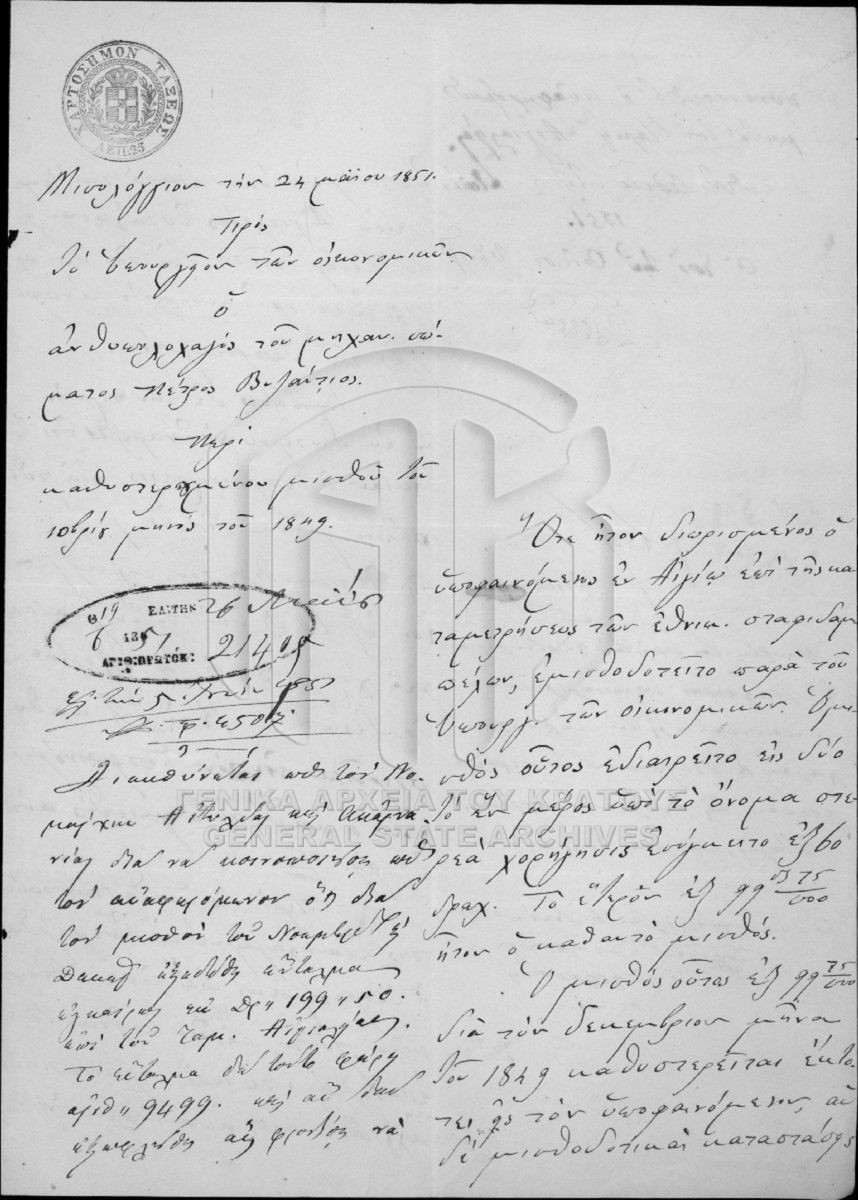 ΧΑΡΤΟΣΗΜΟΝ ΤΑΞΕΩΣ
ΛΕΠ. 25
Μισολόγγιον τὴν 24 μαΐου 1851.
Πρὸς
Τὸ Ὑπουργεῖον τῶν οἰκονομικῶν
ὁ
ἀνθυπολοχαγὸς τοῦ μηχαν. σώ-
ματος Πέτρος Βυζάντιος.
Περὶ
καθυστερουμένου μισθοῦ τοῦ
10βρίου μηνὸς τοῦ 1849.
ΕΛΗΦΘΗ 26
185
ΑΡΙΘ:ΠΡΩΤΟΚ: 21405
4507
Διευθύνεται τὸν Νο-
μάρχην Αἰτωλίας καὶ Ἀκαρνα
νίας διὰ νὰ κοινοποιήσῃ
τὸν ἀναφερόμενον ὅτι διὰ
τὸν μισθὸν τοῦ Νοεμβρ.
Δεκεμβ ἐξεδόθη ἔνταλμα
ἐκ Δρ 199 50.
ἐπὶ τοῦ ταμ. Αἰγιαλείας.
Τὸ ἔνταλμα φέρει
ἀριθ 9499. καὶ ἂν δὲν
ἐξωφλήθη ἂς φροντίσῃ νὰ
Ὅτε ἦτον διωρισμένος ὁ
ὑποφαινόμενος ἐν Αἰγίῳ ἐπὶ τῆς κα
ταμετρήσεως τῶν ἐθνικ. σταφιδαμ
πέλων, ἐμισθοδοτεῖτο παρὰ τοῦ
Ὑπουργ. τῶν οἰκονομικῶν. Ὁ μι
σθὸς οὗτος ἐδιαιρεῖτο εἰς δύο
Τὸ ἓν μέρος ὑπὸ τὸ ὄνομα στε
ρεὰ χορήγησις ἐσύγκειτο ἐξ 60
δραχ. Τὸ ἕτερον ἐξ 99 75/100
ἦτον ὁ καθαυτὸ μισθός.
Ὁ μισθὸς οὗτος ἐξ 99 75/100
διὰ τὸν δεκέμβριον μῆνα
τοῦ 1849 καθυστερεῖται
τὸν ὑποφαινόμενον, αἱ
δὲ μισθοδοτικαὶ καταστάσεις
ΓΕΝΙΚΑ ΑΡΧΕΙΑ ΤΟΥ ΚΡΑΤΟΥΣ
GENERAL STATE ARCHIVES